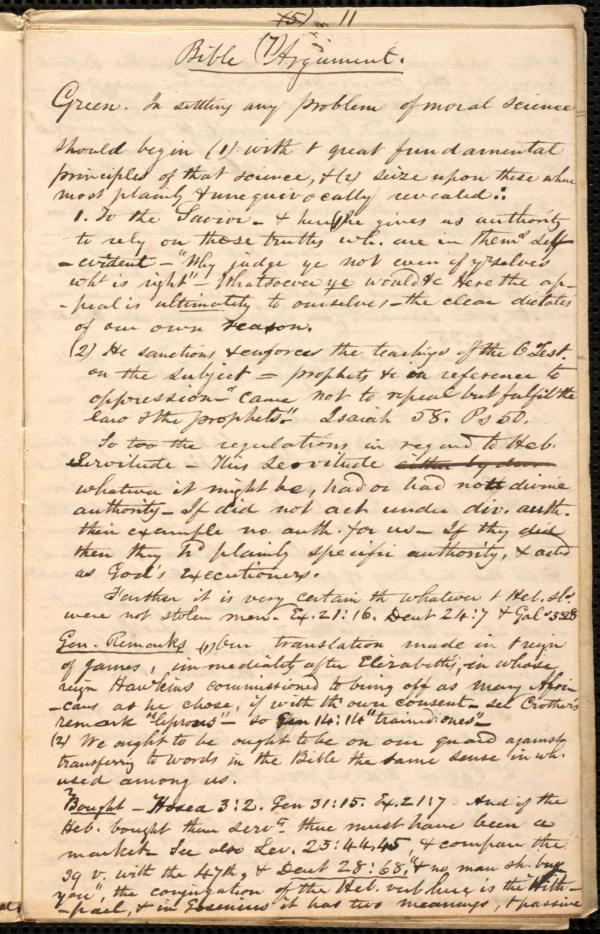 (5) 11
Bible (7) Argument.
Green. In settling any problem of moral science
should begin (1) with t great fundamental
principles of that science, & (2) seize upon these where
most plainly & unequivocally revealed:
1. To the Savior - & here (1) he gives us authority
to rely on those truths wh. are in thems self
-evident - "Why judge ye not even of yrselves
wht is right" - Whatsoever ye would &c Here the ap-
-peal is ultimately to ourselves - the clear dictates
of our own reason.
(2) He sanctions & enforces the teachings of the O Test.
on the subject = prophets &c in reference to
oppression - "came not to repeal but fulfil the
law & the prophets." Isaiah 58. Ps 50.
So too the regulations in regard to Heb.
Servitude - This servitude either by
whatever it might be, had or had not divine
authority - If did not act under div. auth.
their example no auth. for us - If they did
then they hd plainly specific authority, & acted
as God's executioners.
Further it is very certain th whatever t Heb. sts.
were not stolen men. Ex. 21:16. Deut 24:7 & Gal 3:28
Gen. Remarks (1) Our translation made in t reign
of James, immediately after Elizabeth's, in whose
reign Hawkins commissioned to bring off as many Afri-
-cans as he chose, if with the own consent - see Crother's
remark "leprous" - so Gen 14:14 "trained ones" -
(2) We ought to be ought to be on our guard against
transferring to words in the Bible the same sense in wh.
used among us.
Bought - Hosea 3:2. Gen 31:15. Ex. 21:7 And if the
Heb. bought than servts. there must have been a
market. See also Lev. 25:44,45, & compare the
39 v. with the 47th, & Deut 28:68, "& no man sh. buy
you", the conjugation of the Heb. verb here is the Hith-
-pael, & in Gesenius it has two meanings, t passive